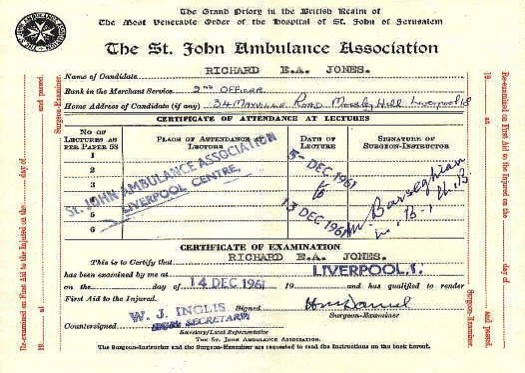 The Grand Priory in the British Realm of
The Most Venerable Order of the Hospital of St. John of Jerusalem
The St. John Ambulance Association
Name of Candidate RICHARD E.A. JONES.
Rank in the Merchant Service 2ND OFFICER
Home Address of Candidate (if any) 34 ROAD Mossley Hill Liverpool 18
CERTIFICATE OF ATTENDANCE AT LECTURES
NO OF LECTURES AS PER PAPER 55
PLACE OF ATTENDANCE AT LECTURE
DATE OF LECTURE
SIGNATURE OF SURGEON-INSTRUCTOR
1
2
3
4
5
6
ST. JOHN AMBULANCE ASSOCIATION
LIVERPOOL CENTRE.
5- DEC 1961
to
13 DEC 1961
M. Barseghian
M.B., Ch.B.
CERTIFICATE OF EXAMINATION
This is to Certify that RICHARD E.A. JONES.
has been examined by me at LIVERPOOL.1.
on the day of 14 DEC 1961 19 and has qualified to render
First Aid to the Injured.
Signed
Surgeon-Examiner
W. J. INGLIS
SECRETARY
Countersigned
Secretary/Local Representative
THE ST. JOHN AMBULANCE ASSOCIATION.
The Surgeon-Instructor and the Surgeon-Examiner are requested to read the Instructions on the back hereof.
Re-examined on First Aid to the Injured on the day of 19 at and passed.
Surgeon-Examiner
Re-examined on First Aid to the Injured on the day of 19 at and passed.
Surgeon-Examiner